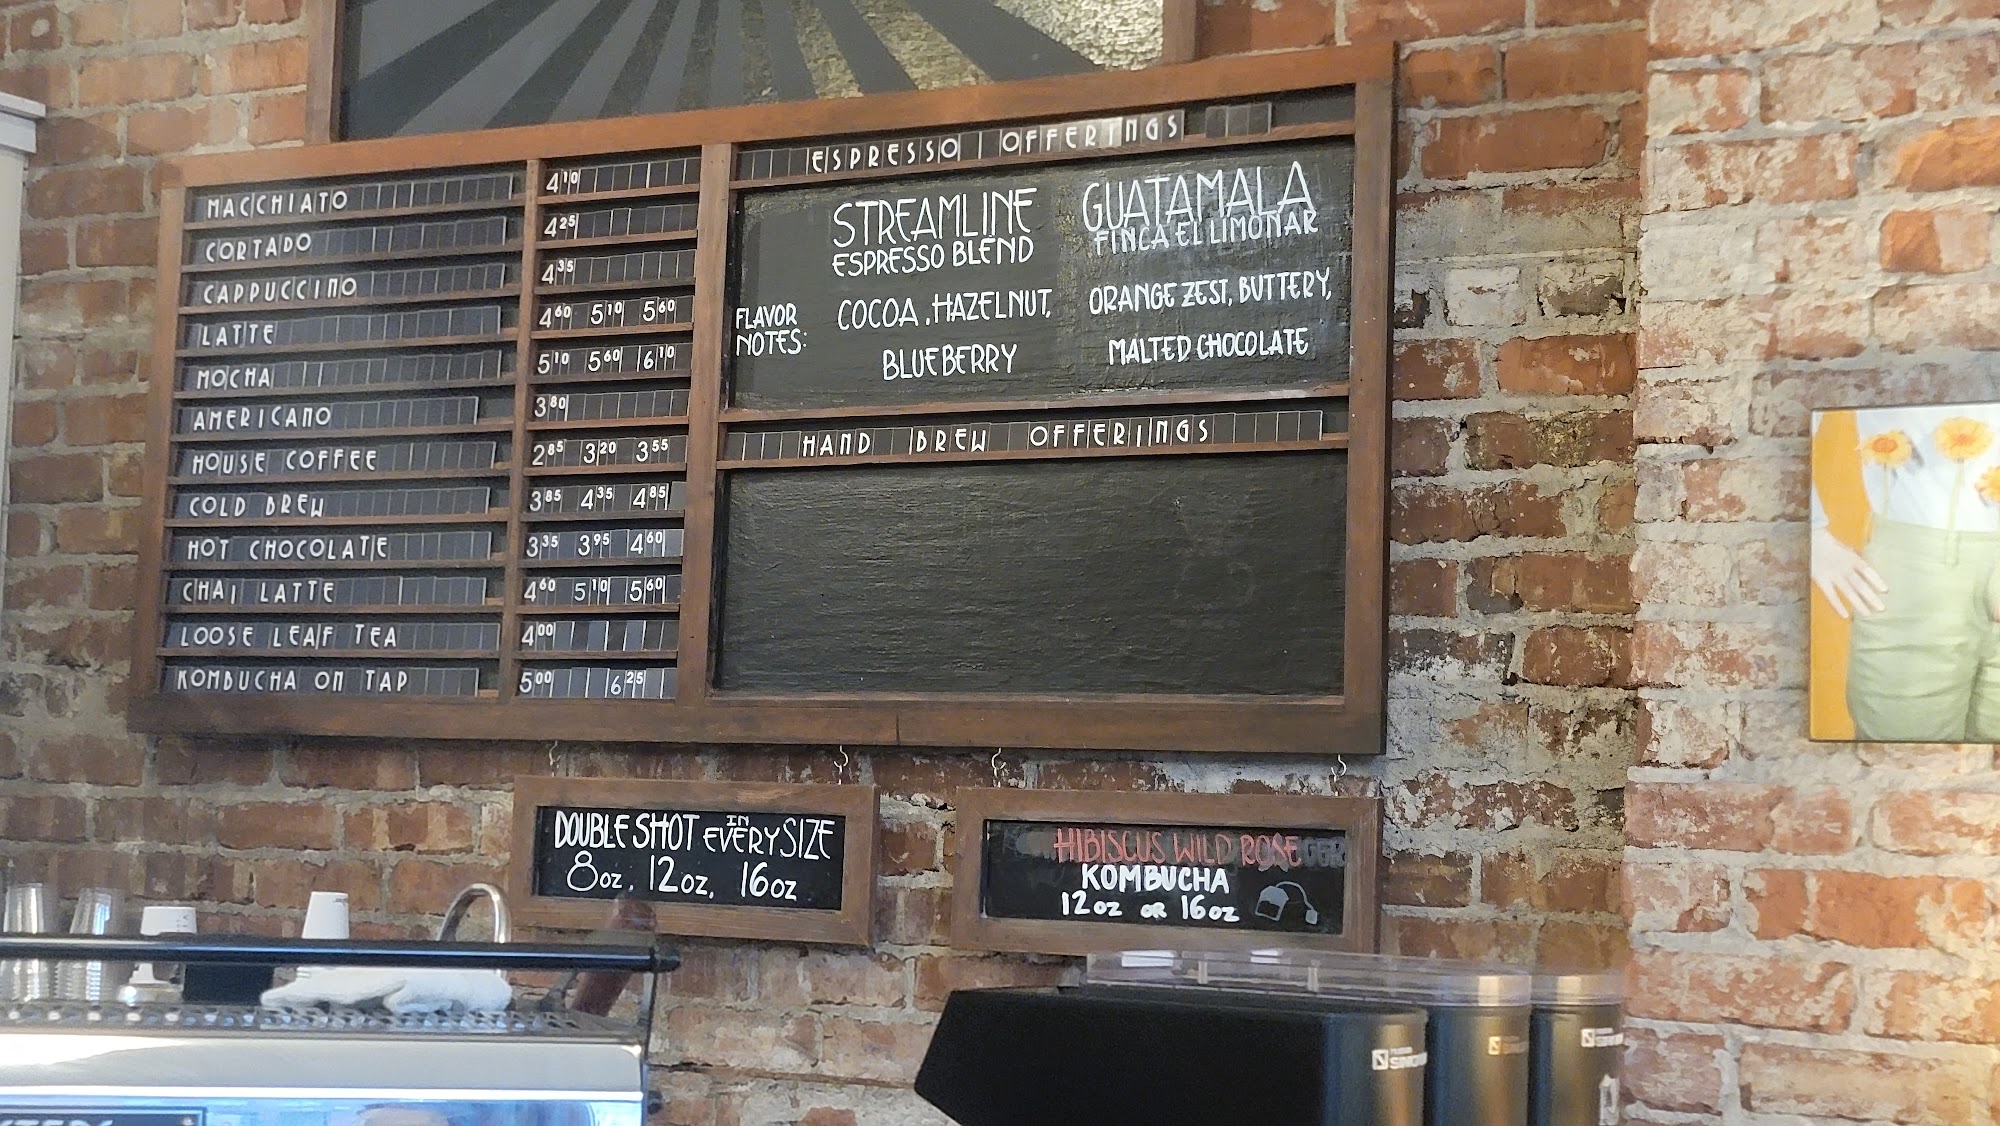 MACCHIATO 4¹⁰
CORTADO 4²⁵
CAPPUCCINO 4³⁵
LATTE 4⁶⁰ 5¹⁰ 5⁶⁰
MOCHA 5¹⁰ 5⁶⁰ 6¹⁰
AMERICANO 3⁸⁰
HOUSE COFFEE 2⁸⁵ 3²⁰ 3⁵⁵
COLD BREW 3⁸⁵ 4³⁵ 4⁸⁵
HOT CHOCOLATE 3³⁵ 3⁹⁵ 4⁶⁰
CHAI LATTE 4⁶⁰ 5¹⁰ 5⁶⁰
LOOSE LEAF TEA 4⁰⁰
KOMBUCHA ON TAP 5⁰⁰ 6²⁵
ESPRESSO OFFERINGS
STREAMLINE
ESPRESSO BLEND
GUATAMALA
FINCA EL LIMONAR
FLAVOR
NOTES:
COCOA, HAZELNUT,
BLUEBERRY
ORANGE ZEST, BUTTERY,
MALTED CHOCOLATE
HAND BREW OFFERINGS
DOUBLE SHOT IN EVERY SIZE
8oz, 12oz, 16oz
HIBISCUS WILD ROSE
KOMBUCHA
12oz OR 16oz